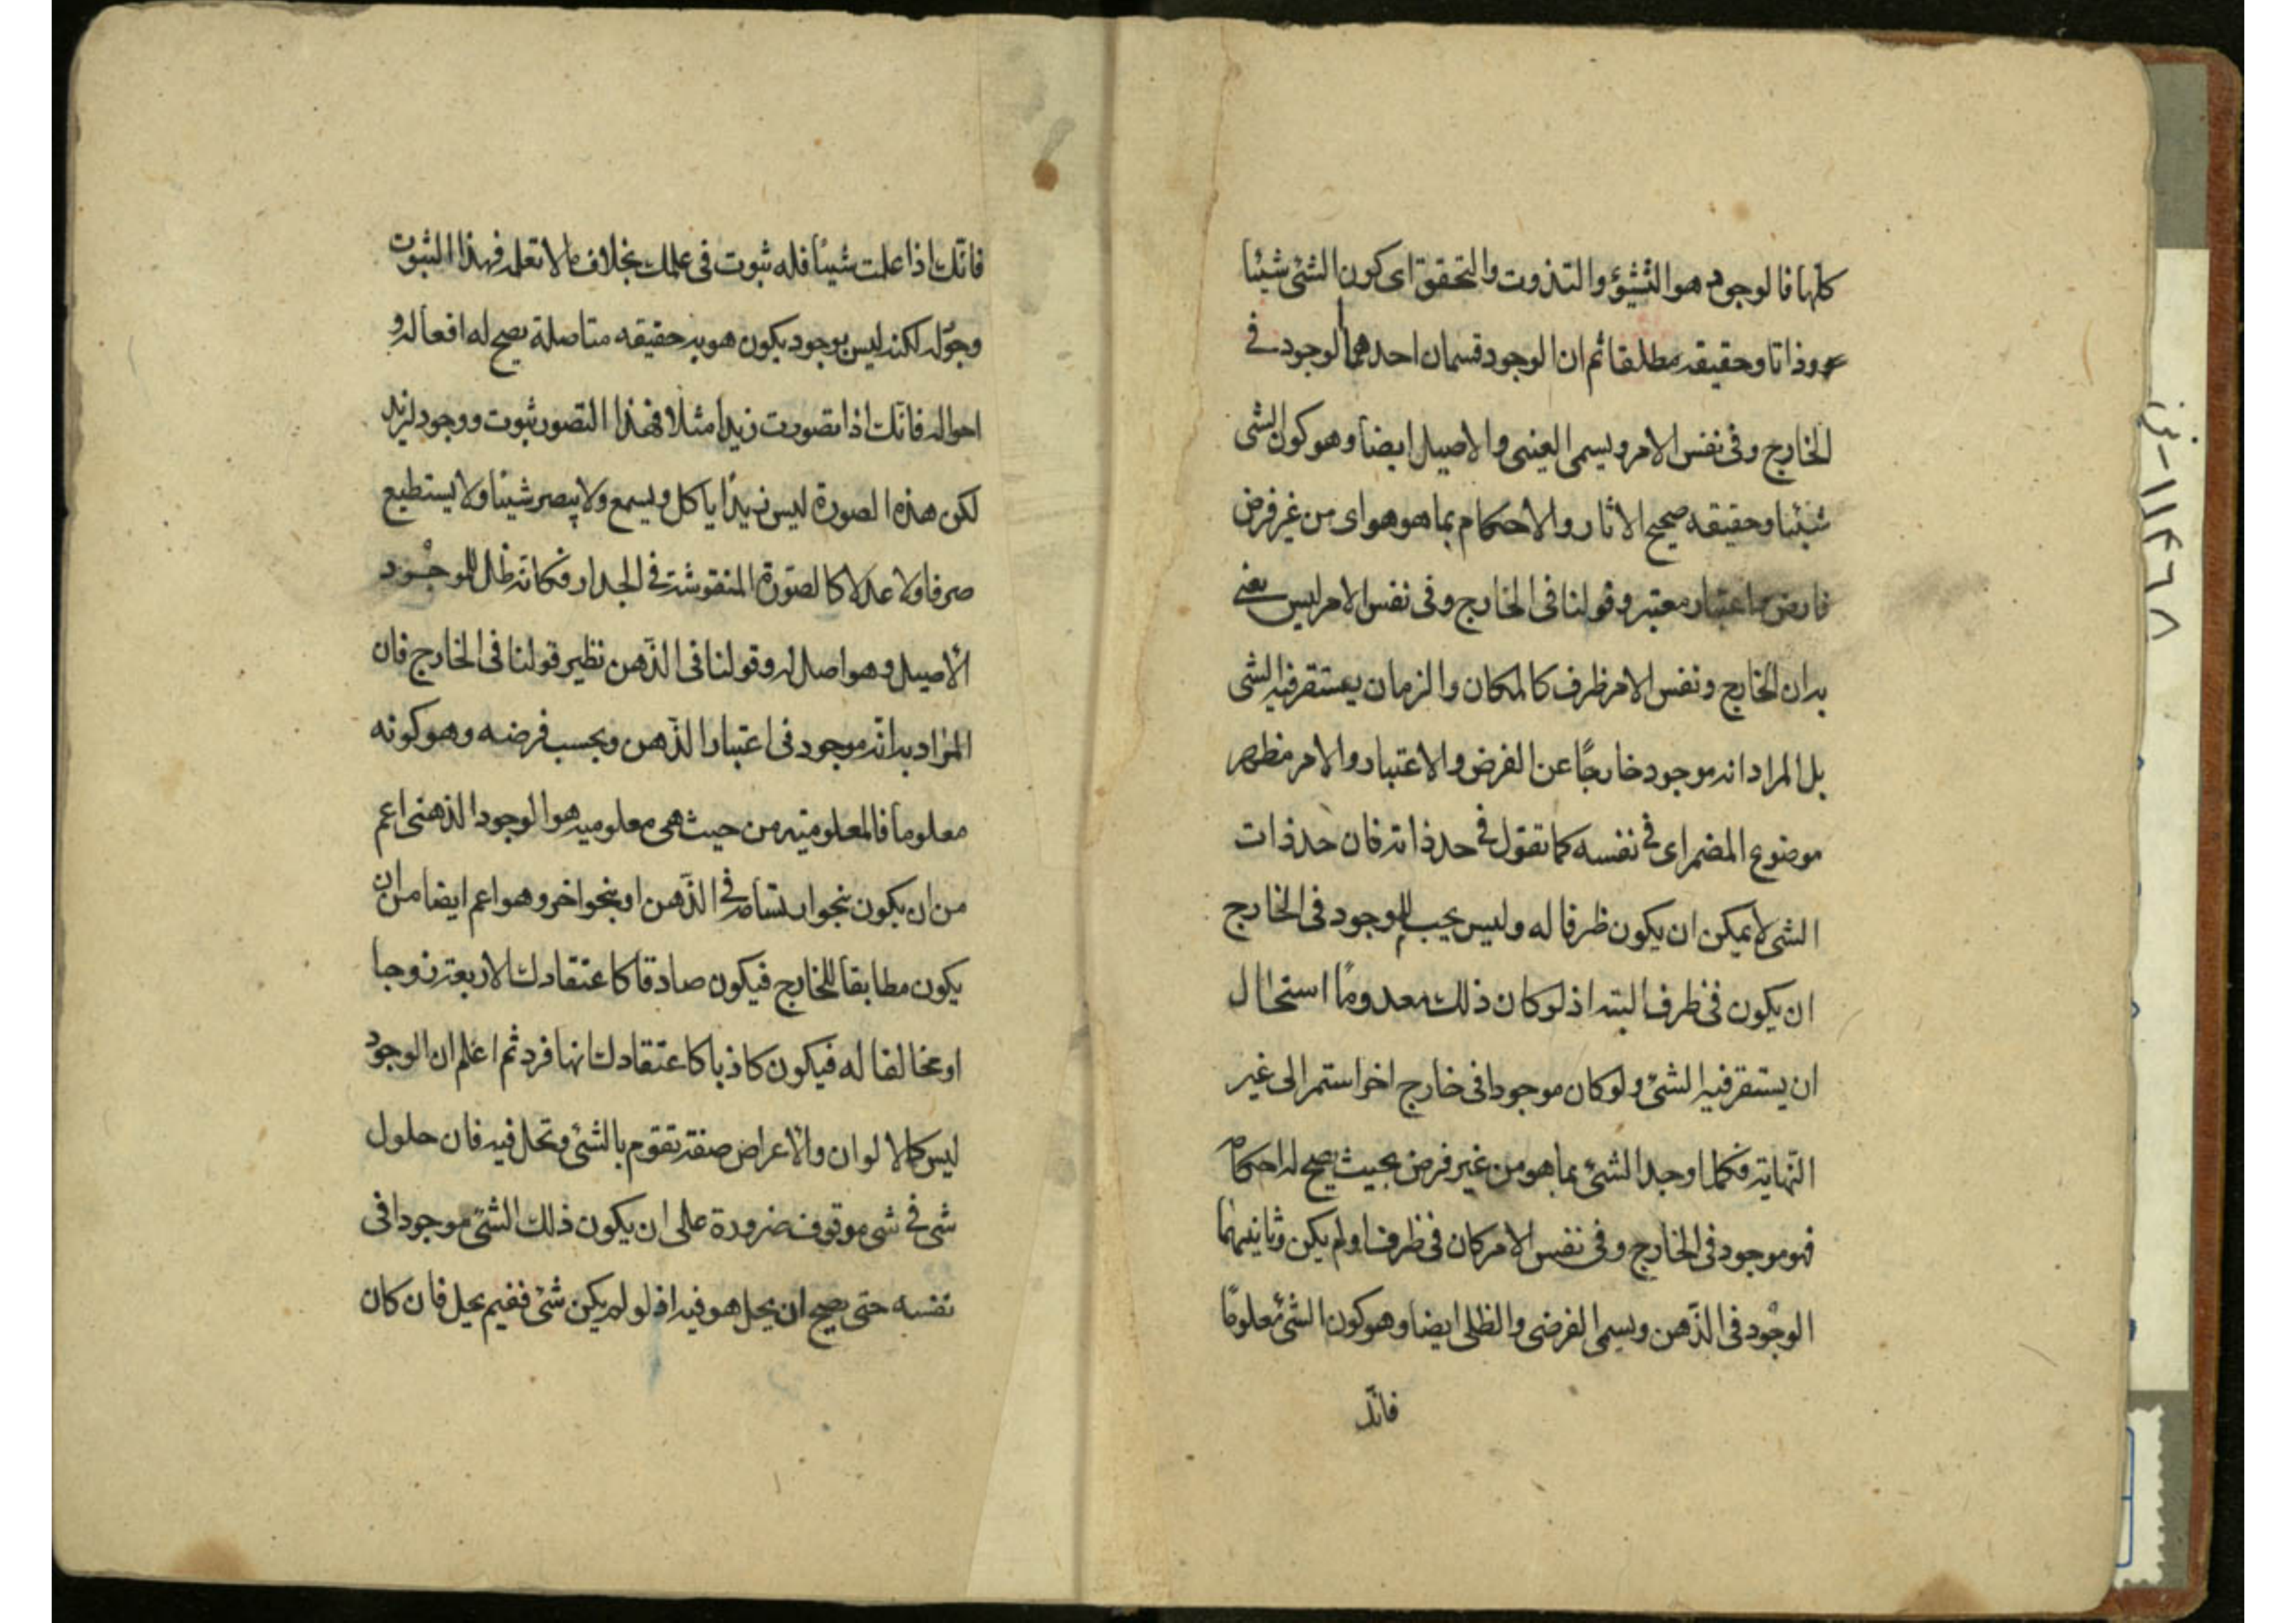 كلها فالوجود هو التشيؤ والتذوت والتحقق اى كون الشئ شيئا
وذاتا وحقيقه مطلقا ثم ان الوجود قسمان احدهما الوجود فى
الخارج وفى نفس الامر ويسمى العينى والاصيل ايضا وهو كون الشى
شيئا وحقيقه صحيح الاثار والاحكام بما هو هو اى من غير فرض
فارض واعتبار معتبر وقولنا فى الخارج وفى نفس الامر ليس نعنى
به ان الخارج ونفس الامر ظرف كالمكان والزمان يستقر فيه الشى
بل المراد انه موجود خارجًا عن الفرض والاعتبار والامر مظهر
موضوع المضمر اى فى نفسه كما تقول فى حد ذاته فان حد ذات
الشى لا يمكن ان يكون ظرفا له وليس يجب للموجود فى الخارج
ان يكون فى ظرف البته اذ لو كان ذلك معدومًا استحال
ان يستقر فيه الشئ ولو كان موجودا فى خارج اخر استمر الى غير
النّهاية فكلما وجد الشئ بما هو من غير فرض بحيث يصح له احكام
فهو موجود فى الخارج وفى نفس الامر كان فى ظرف او لم يكن وثانيهما
الوجود فى الذّهن ويسمى الفرضى والظلى ايضا وهو كون الشئ معلومًا
فانّك
فانّك اذا علمت شيئًا فله ثبوت فى علمك بخلاف ما لا تعلمه فهذا الثبوت
وجود له لكنه ليس بوجود يكون هو به حقيقه متاصلة يصح له افعاله و
احواله فانّك اذا تصورت زيدا مثلا فهذا التصور ثبوت ووجود لزيد
لكن هذه الصورة ليس زيدًا ياكل ويسمع ولا يبصر شيئا ولا يستطيع
صرفا ولا عدلا كالصّورة المنقوشة فى الجدار فكانه ظل للوجود
الأصيل وهو اصل له وقولنا فى الذّهن نظير قولنا فى الخارج فان
المراد به انّه موجود فى اعتبار الذّهن وبحسب فرضه وهو كونه
معلوما فالمعلوميّه من حيث هى معلوميه هو الوجود الذهنى اعم
من ان يكون بنحو ارتسامه فى الذّهن او بنحو اخر وهو اعم ايضا من ان
يكون مطابقا للخارج فيكون صادقا كاعتقادك الاربعة زوجا
او مخالفا له فيكون كاذبا كاعتقادك انها فرد ثم اعلم ان الوجود
ليس كالالوان والأعراض صفة تقوم بالشئ وتحل فيه فان حلول
شى فى شى موقوف ضرورة على ان يكون ذلك الشئ موجودا فى
نفسه حتى يصح ان يحل هو فيه اذ لو لم يكن شئ ففيم يحل فان كان
١١٤٦٨